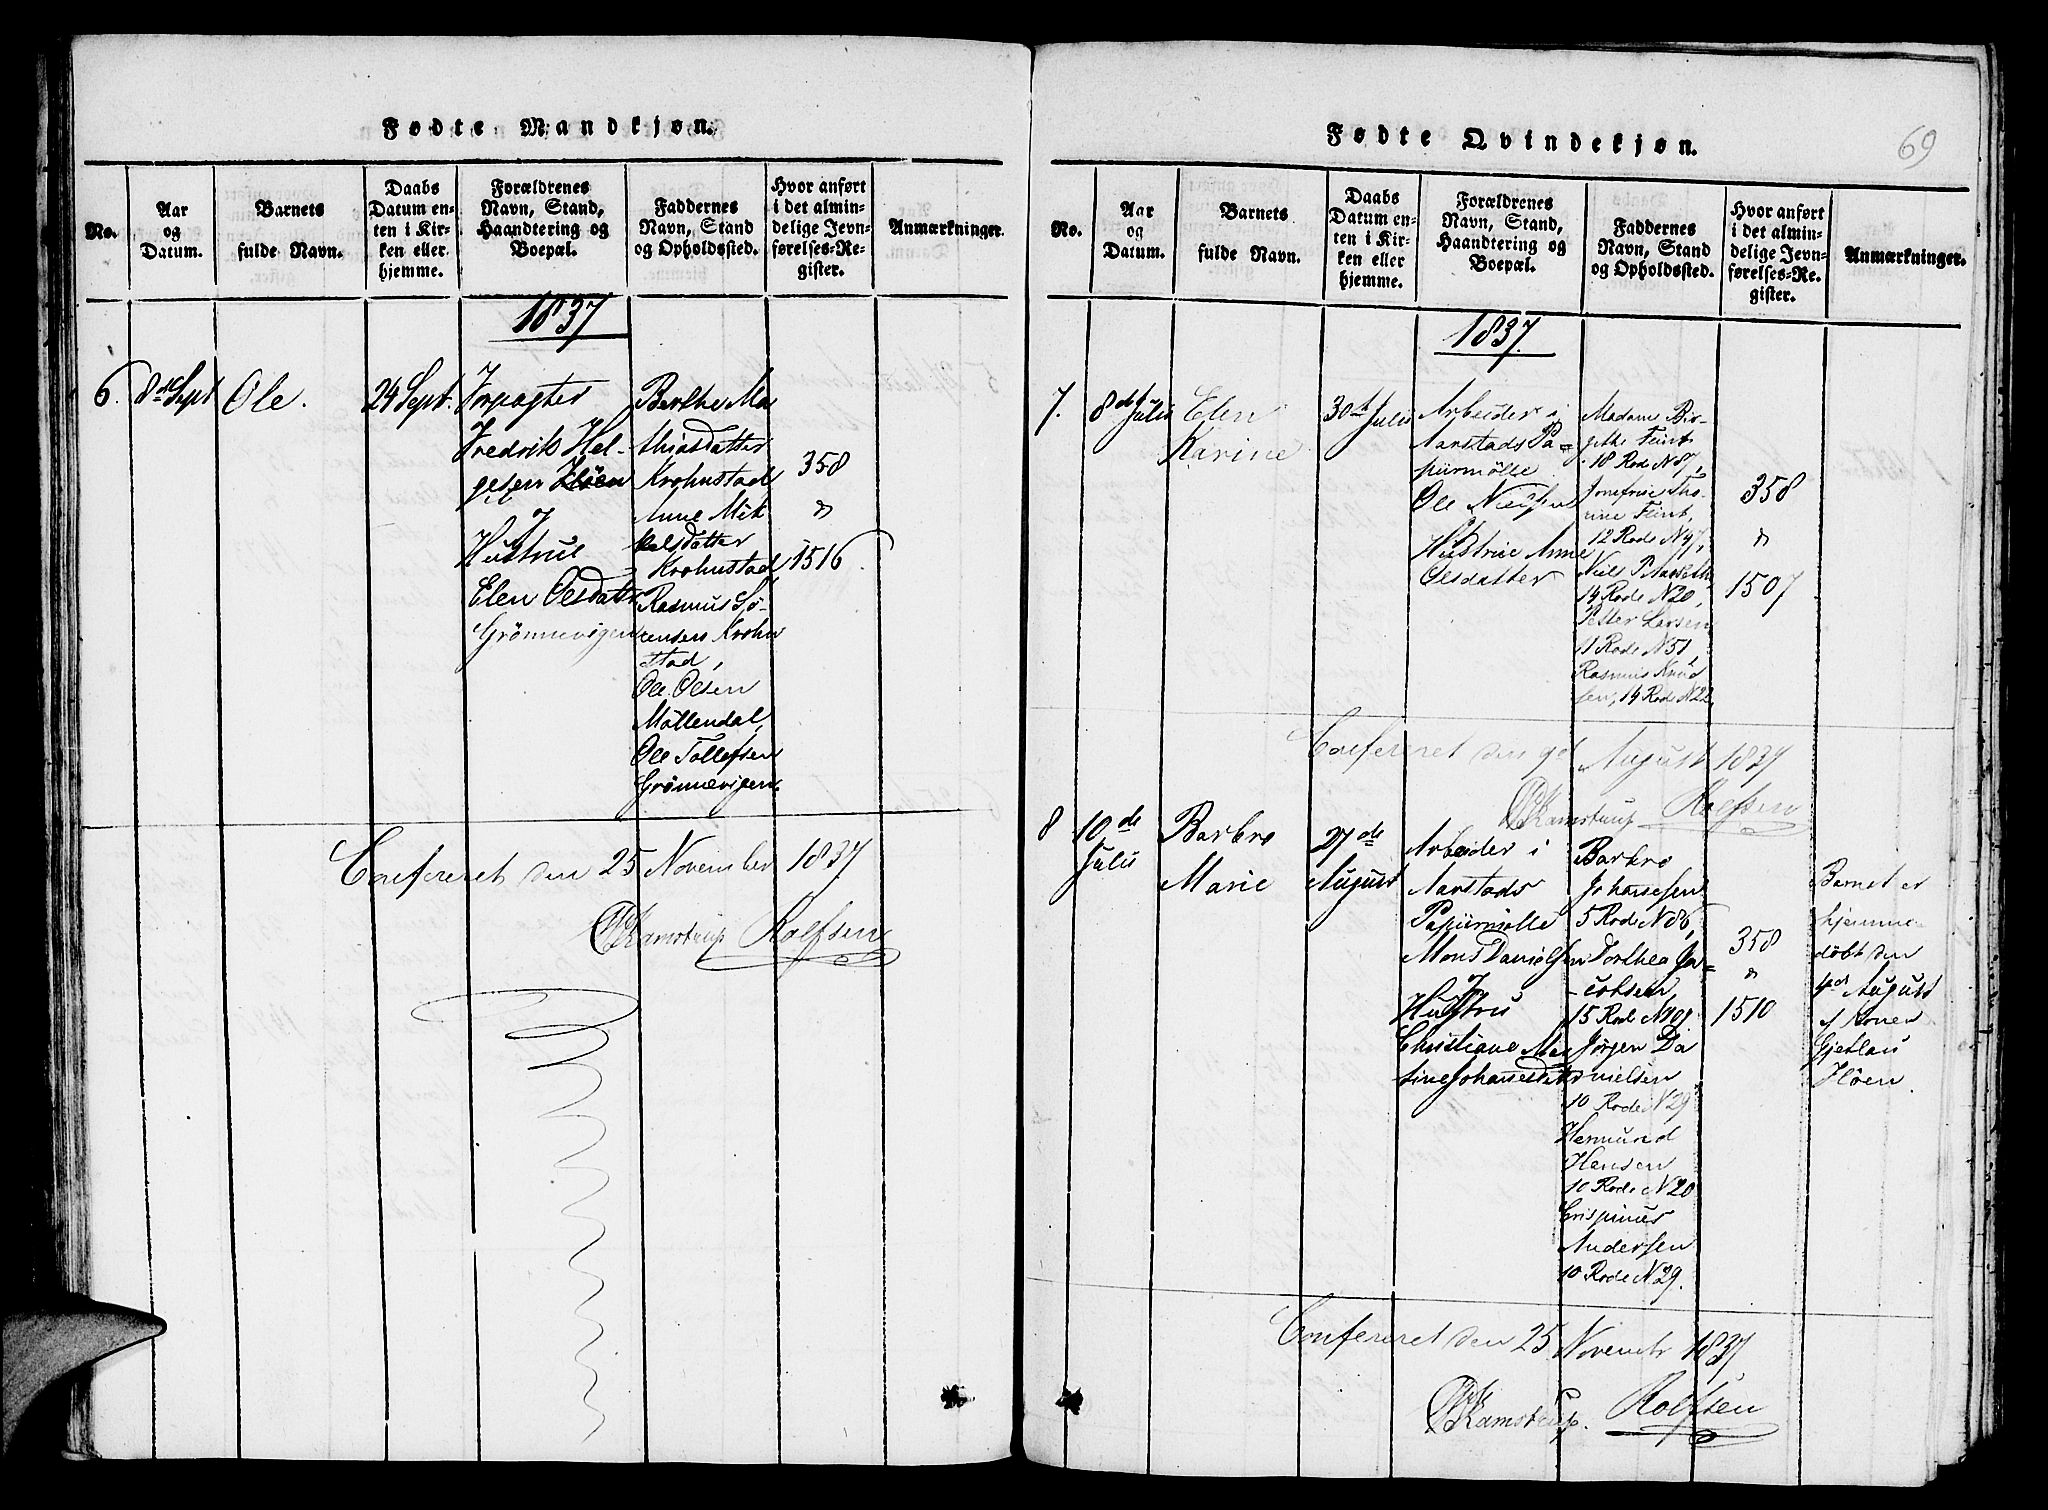 Fødte Mandkjøn.
No.
Aar
og
Datum.
Barnets
fulde Navn.
Daabs
Datum en-
ten i Kir-
ken eller
hjemme.
Forældrenes
Navn, Stand,
Haandtering og
Boepæl.
Faddernes
Navn, Stand
og Opholdssted.
Hvor anført
i det almin-
delige Jevn-
førelses-Re-
gister.
Anmærkninger.
1837
6.
8de Sept
Ole.
24 Sept.
Forpagter
Fredrik Hel-
gesen Fløen
Hustrue
Elen Olsdatr
Grønnevigen
Berthe Ma
thiasdatter
Krohnstad
Anne Mik
kelsdatter
Krohnstad
Rasmus Sø-
rensen Krohn
stad,
Ole Olsen
Møllendal,
Ole Tollefsen
Grønnevigen.
358
1516.
Confereret den 25 November 1837
Kamstrup Rolfsen
Fødte Qvindekjøn.
69
No.
Aar
og
Datum.
Barnets
fulde Navn.
Daabs
Datum en-
ten i Kir-
ken eller
hjemme.
Forældrenes
Navn, Stand,
Haandtering og
Boepæl.
Faddernes
Navn, Stand
og Opholdssted.
Hvor anført
i det almin-
delige Jevn-
førelses-Re-
gister.
Anmærkninger.
1837.
7.
8de Juli
Elen
Karine
30t Juli
Arbeider i
Aarstads Pa-
piirmølle
Ole Nielsen
Hustrue Anne
Olsdatter
Madam Bir-
githe Feint
18 Rode N 87,
Thorine Feint,
12 Rode N 47,
Niels P.
14 Rode N 20,
Petter Larsen
11 Rode N 51,
Rasmus Knud
sen, 14 Rode N 22
358
1507
Confereret den 9d August 1837
Kamstrup Rolfsen
8
10de
Juli
Barbro
Marie
27de
August
Arbeider i
Aarstads
Papiirmølle
Mons Danielsen
Hustru
Christiane Mar
tine Johanesdatr
Barbro
Johannesen
5 Rode N 86,
Dorthea Ja-
cobsen
15 Rode N 101
Jørgen Da
nielsen
10 Rode N 29
Hermund
Hansen
10 Rode N 20
Crispinus
Andersen
10 Rode N 29.
358
1510
Barnet er
hjemme-
døbt den
4de August
af Konen
Gjetlau
Fløen.
Confereret den 25 Novembr 1837
Kamstrup. Rolfsen